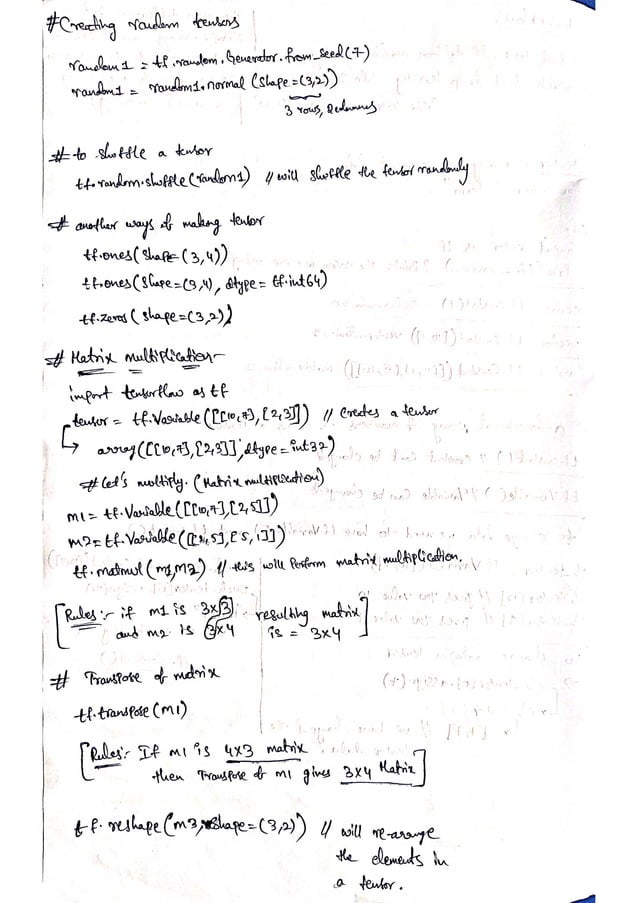 # Creating random tensors
random1 = tf.random.Generator.from_seed(7)
random1 = random1.normal (shape=(3,2))
3 rows, 2 columns
# to shuffle a tensor
tf.random.shuffle(random1) // will shuffle the tensor randomly
# another ways of making tensor
tf.ones(shape=(3,4))
tf.ones(shape=(3,4), dtype=tf.int64)
tf.zeros(shape=(3,2))
# Matrix multiplication-
import tensorflow as tf
tensor = tf.Variable([[10,7],[2,3]]) // creates a tensor
array([[10,7],[2,3]], dtype=int32)
# Let's multiply. (Matrix multiplication)
m1 = tf.Variable([[10,7],[2,5]])
m2 = tf.Variable([[ ,5],[5,1]])
tf.matmul(m1,m2) // this will perform matrix multiplication.
[Rules:- if m1 is 3x3 resulting matrix
and m2 is 3x4 is = 3x4]
# Transpose of matrix
tf.transpose(m1)
[Rules:- If m1 is 4x3 matrix
then Transpose of m1 gives 3x4 Matrix]
tf.reshape(m3, shape=(3,2)) // will re-arange
the elements in
a tensor.